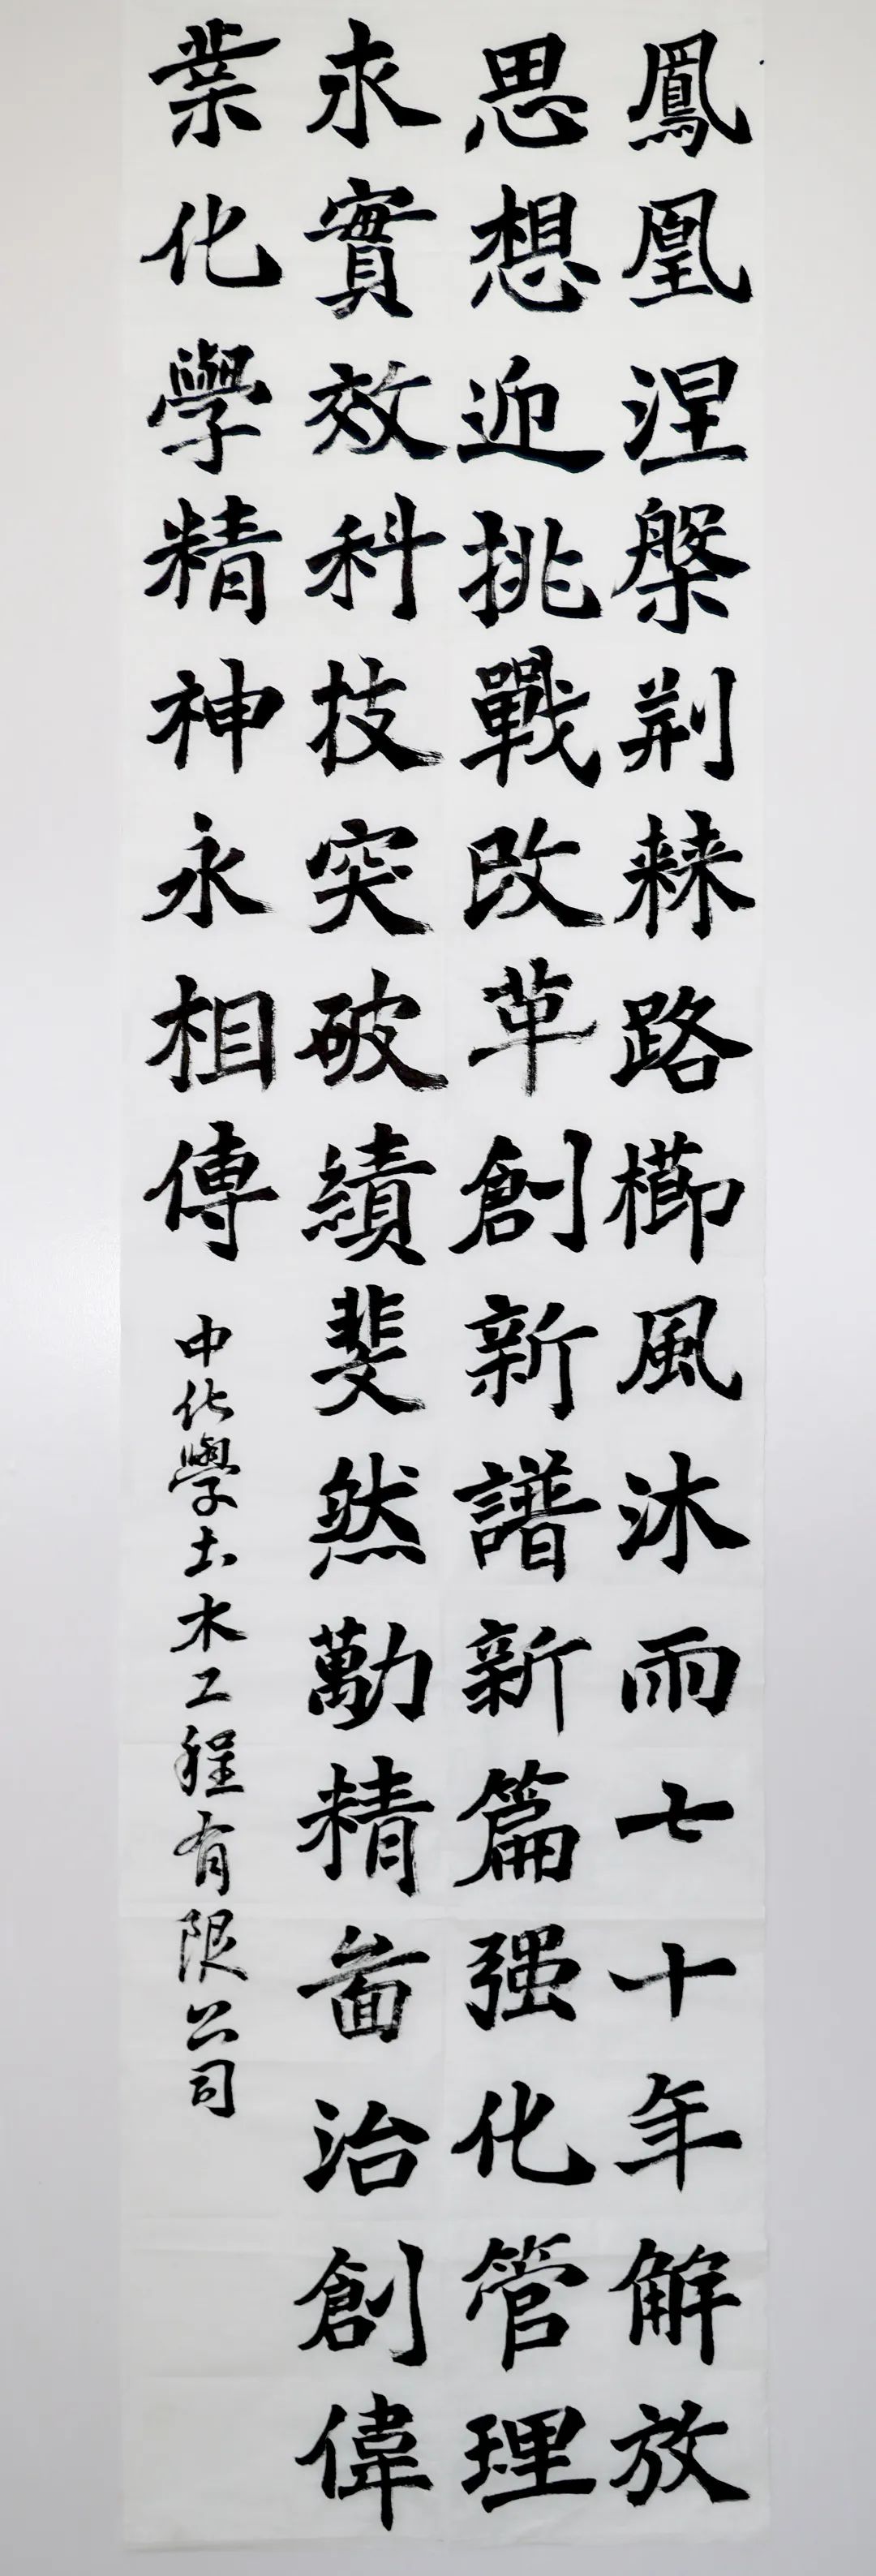 鳳凰涅槃荆棘路櫛風沐雨七十年解放
思想迎挑戰改革創新譜新篇强化管理
求實效科技突破績斐然勵精啚治創偉
業化學精神永相傳
中化學土木工程有限公司